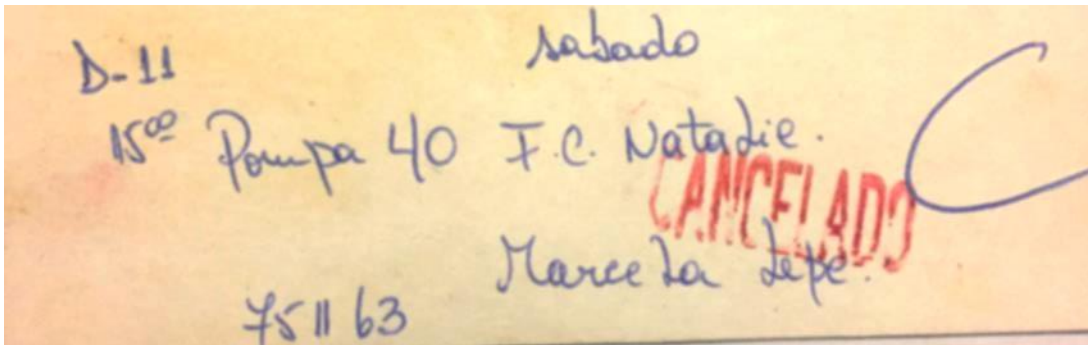 D-11 sabado
15⁰⁰ Pompa 40 F.C. Natalie.
CANCELADO
Marcela Lepe.
75 11 63